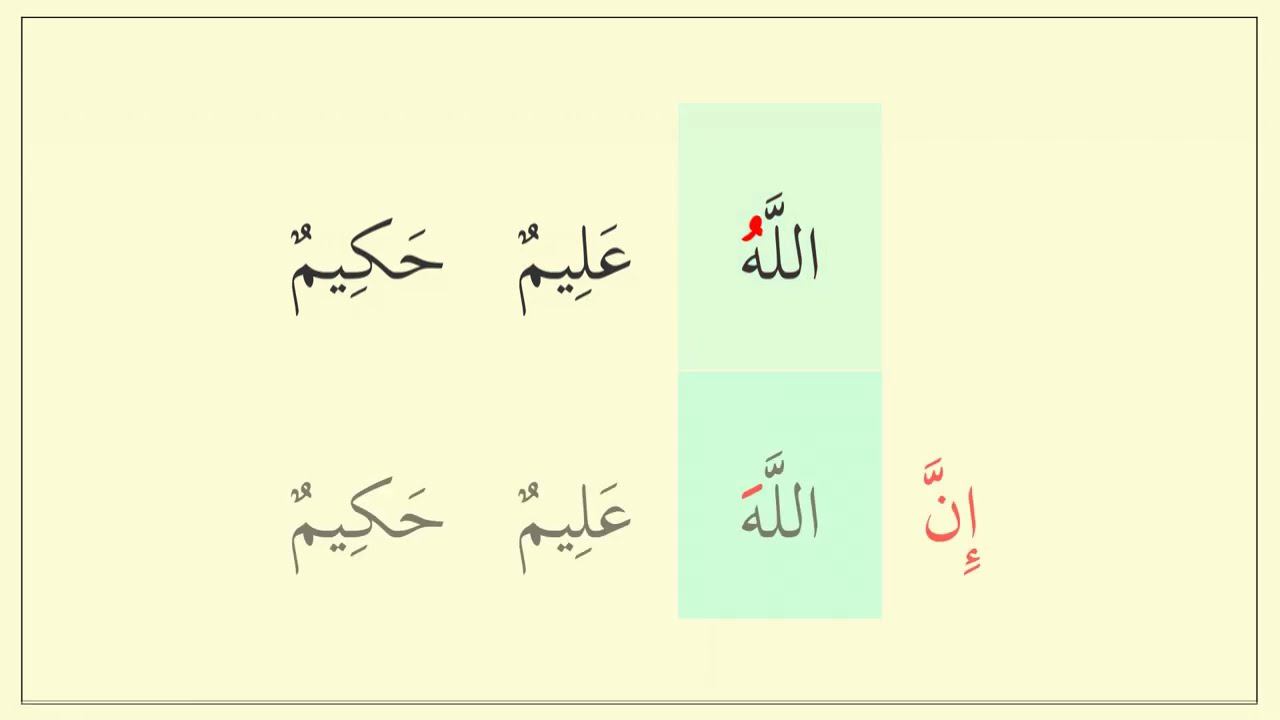 اللَّهُ عَلِيمٌ حَكِيمٌ
إِنَّ اللَّهَ عَلِيمٌ حَكِيمٌ